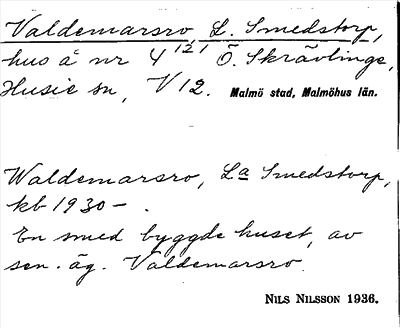 Valdemarsro, L. Smedstorp,
hus å nr 4¹²¹ Ö. Skrävlinge,
Husie sn, V 12. Malmö stad, Malmöhus län.
Waldemarsro, La Smedstorp,
kb 1930 – .
En smed byggde huset, av
sen. äg. Valdemarsro.
NILS NILSSON 1936.